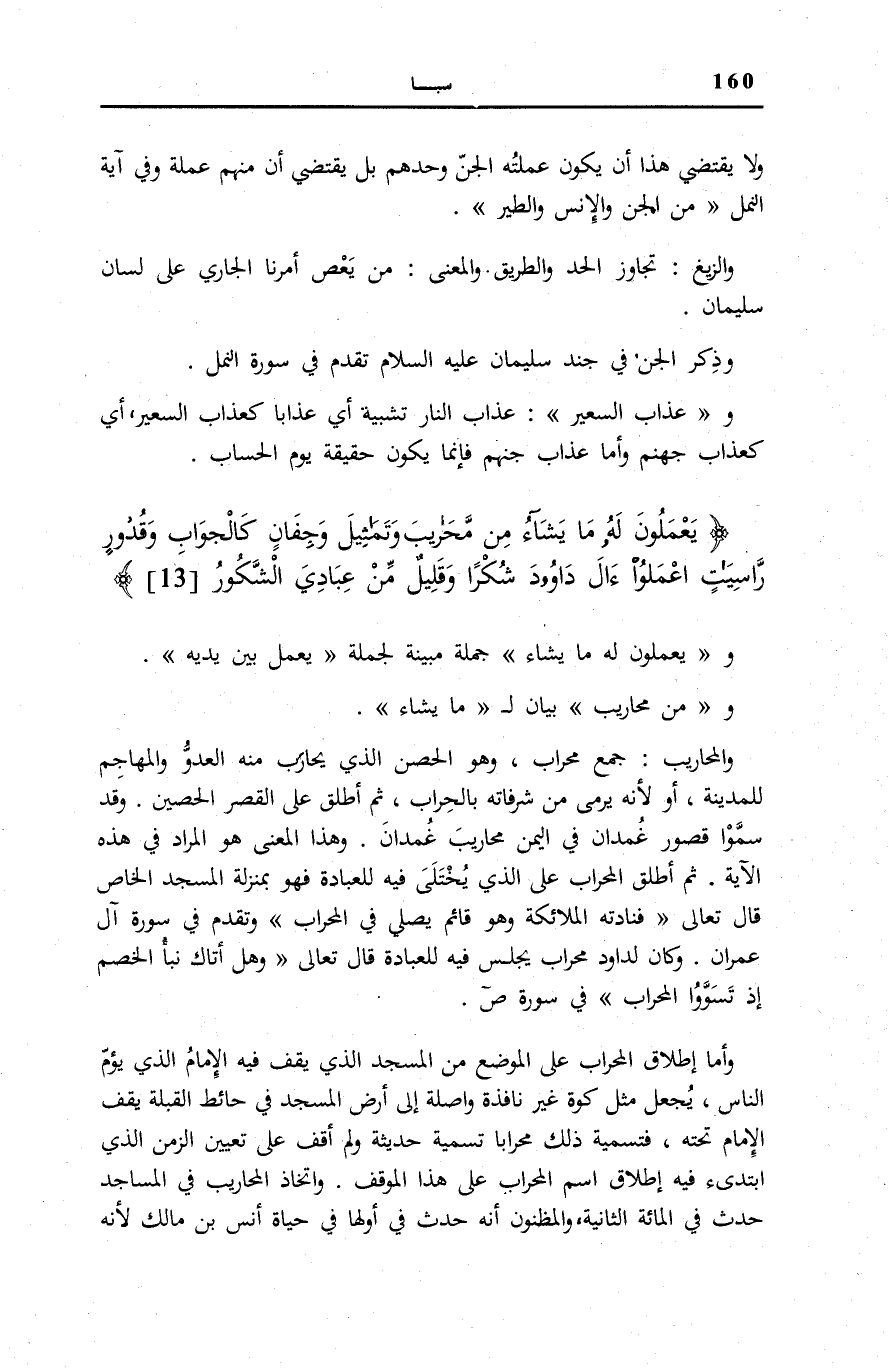 160
سبـــا
ولا يقتضي هذا أن يكون عملتُه الجنّ وحدهم بل يقتضي أن منهم عملة وفي آية
النمل « من الجن والإنس والطير » .
والزيغ : تجاوز الحد والطريق. والمعنى : من يَعْص أمرنا الجاري على لسان
سليمان .
وذِكر الجن في جند سليمان عليه السلام تقدم في سورة النمل .
و « عذاب السعير » : عذاب النار تشبية أي عذابا كعذاب السعير، أي
كعذاب جهنم وأما عذاب جنهم فإنما يكون حقيقة يوم الحساب .
﴿ يَعْمَلُونَ لَهُۥ مَا يَشَآءُ مِن مَّحَٰرِيبَ وَتَمَٰثِيلَ وَجِفَانٍ كَالْجوَابِ وَقُدُورٍ
رَّاسِيَٰتٍ اعْمَلُوٓاْ ءَالَ دَاوُۥدَ شُكْرًا وَقَلِيلٌ مِّنْ عِبَادِيَ الْشَّكُورُ [13] ﴾
و « يعملون له ما يشاء » جملة مبينة لجملة « يعمل بين يديه » .
و « من محاريب » بيان لـ « ما يشاء » .
والمحاريب : جمع محراب ، وهو الحصن الذي يحارَب منه العدوُّ والمهاجِم
للمدينة ، أو لأنه يرمى من شرفاته بالحِراب ، ثم أطلق على القصر الحصين . وقد
سمَّوْا قصور غُمدان في اليمن محاريبَ غُمدانَ . وهذا المعنى هو المراد في هذه
الآية . ثم أطلق المحراب على الذي يُخْتَلَىَ فيه للعبادة فهو بمنزلة المسجد الخاص
قال تعالى « فنادته الملائكة وهو قائم يصلي في المحراب » وتقدم في سورة آل
عمران . وكان لداود محراب يجلس فيه للعبادة قال تعالى « وهل أتاك نبأُ الخصم
إذ تَسَوَّوُا المحراب » في سورة صٓ .
وأما إطلاق المحراب على الموضع من المسجد الذي يقف فيه الإمامُ الذي يؤمّ
الناس ، يُجعل مثل كوة غير نافذة واصلة إلى أرض المسجد في حائط القبلة يقف
الإمام تحته ، فتسمية ذلك محرابا تسمية حديثة ولم أقف على تعيين الزمن الذي
ابتدىء فيه إطلاق اسم المحراب على هذا الموقف . واتخاذ المحاريب في المساجد
حدث في المائة الثانية، والمظنون أنه حدث في أولها في حياة أنس بن مالك لأنه